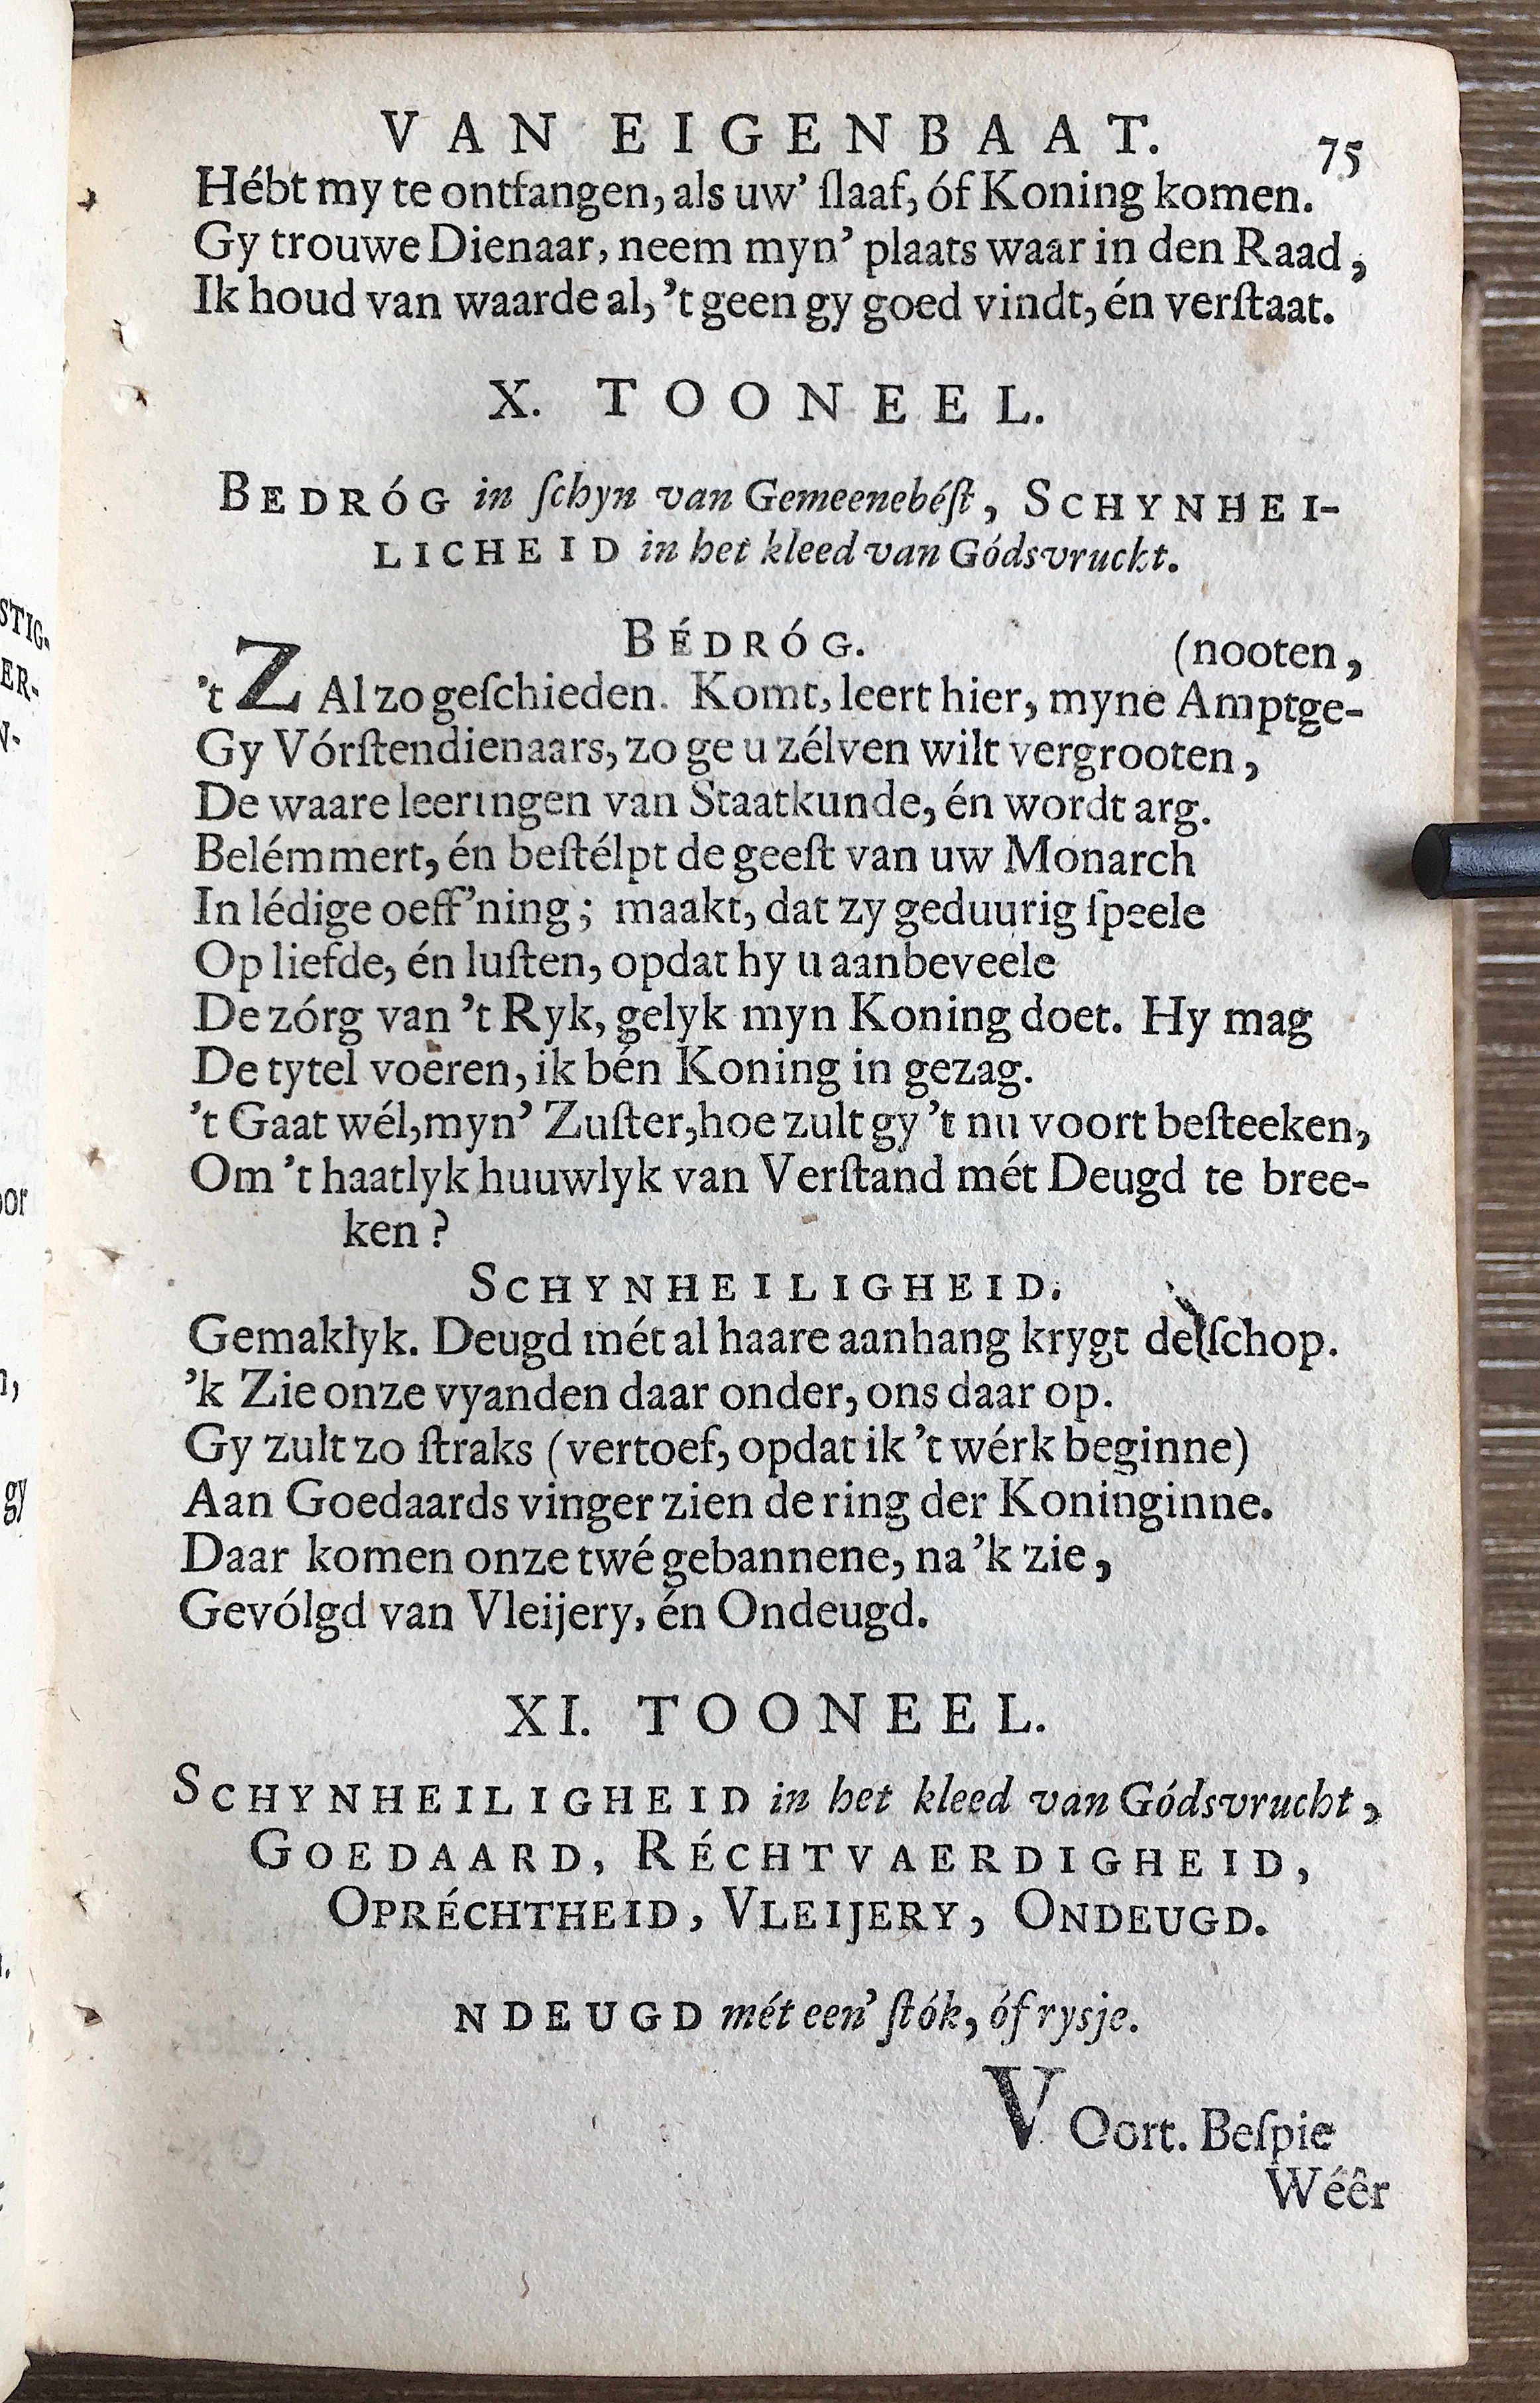 VAN EIGENBAAT. 75
Hébt my te ontfangen, als uw’ ſlaaf, óf Koning komen.
Gy trouwe Dienaar, neem myn’ plaats waar in den Raad,
Ik houd van waarde al, ’t geen gy goed vindt, én verſtaat.
X. TOONEEL.
BEDRÓG in ſchyn van Gemeenebéſt, SCHYNHEI-
LICHEID in het kleed van Gódsvruckt.
BÉDRÓG. (nooten,
’t ZAl zo geſchieden. Komt, leert hier, myne Amptge-
Gy Vórſtendienaars, zo ge u zélven wilt vergrooten,
De waare leeringen van Staatkunde, én wordt arg.
Belémmert, én beſtélpt de geeſt van uw Monarch
In lédige oeff’ning; maakt, dat zy geduurig ſpeele
Op liefde, én luſten, opdat hy u aanbeveele
De zórg van ’t Ryk, gelyk myn Koning doet. Hy mag
De tytel voeren, ik bén Koning in gezag.
’t Gaat wél, myn’ Zuſter, hoe zult gy ’t nu voort beſteeken,
Om ’t haatlyk huuwlyk van Verſtand mét Deugd te bree-
ken?
SCHYNHEILIGHEID.
Gemaklyk. Deugd mét al haare aanhang krygt de ſchop.
’k Zie onze vyanden daar onder, ons daar op.
Gy zult zo ſtraks (vertoef, opdat ik ’t wérk beginne)
Aan Goedaards vinger zien de ring der Koninginne.
Daar komen onze twé gebannene, na ’k zie,
Gevólgd van Vleijery, én Ondeugd.
XI. TOONEEL.
SCHYNHEILIGHEID in het kleed van Gódsvrucht,
GOEDAARD, RÉCHTVAERDIGHEID,
OPRÉCHTHEID, VLEIJERY, ONDEUGD.
NDEUGD mét een’ ſtók, óf rysje.
VOort. Beſpie
Wéêr